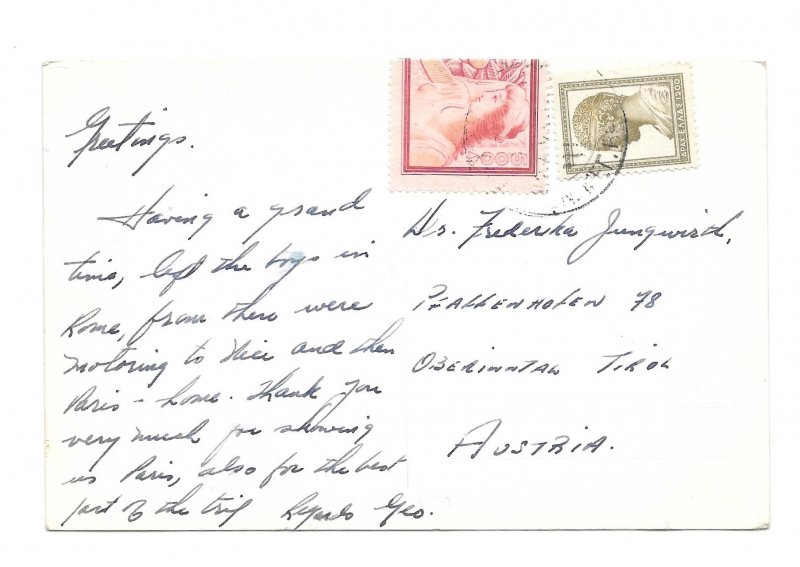 Greetings.
Having a grand
time, left the boys in
Rome, from there were
motoring to Nice and then
Paris - home. Thank you
very much for showing
us Paris, also for the best
part of the trip Regards Geo.
5000
ΔΡΑΧ ΕΛΛΑΣ 1200
Dr. Frederika Jungwirth,
PFAFFENHOFEN 78
OBERINNTAL TIROL
AUSTRIA.